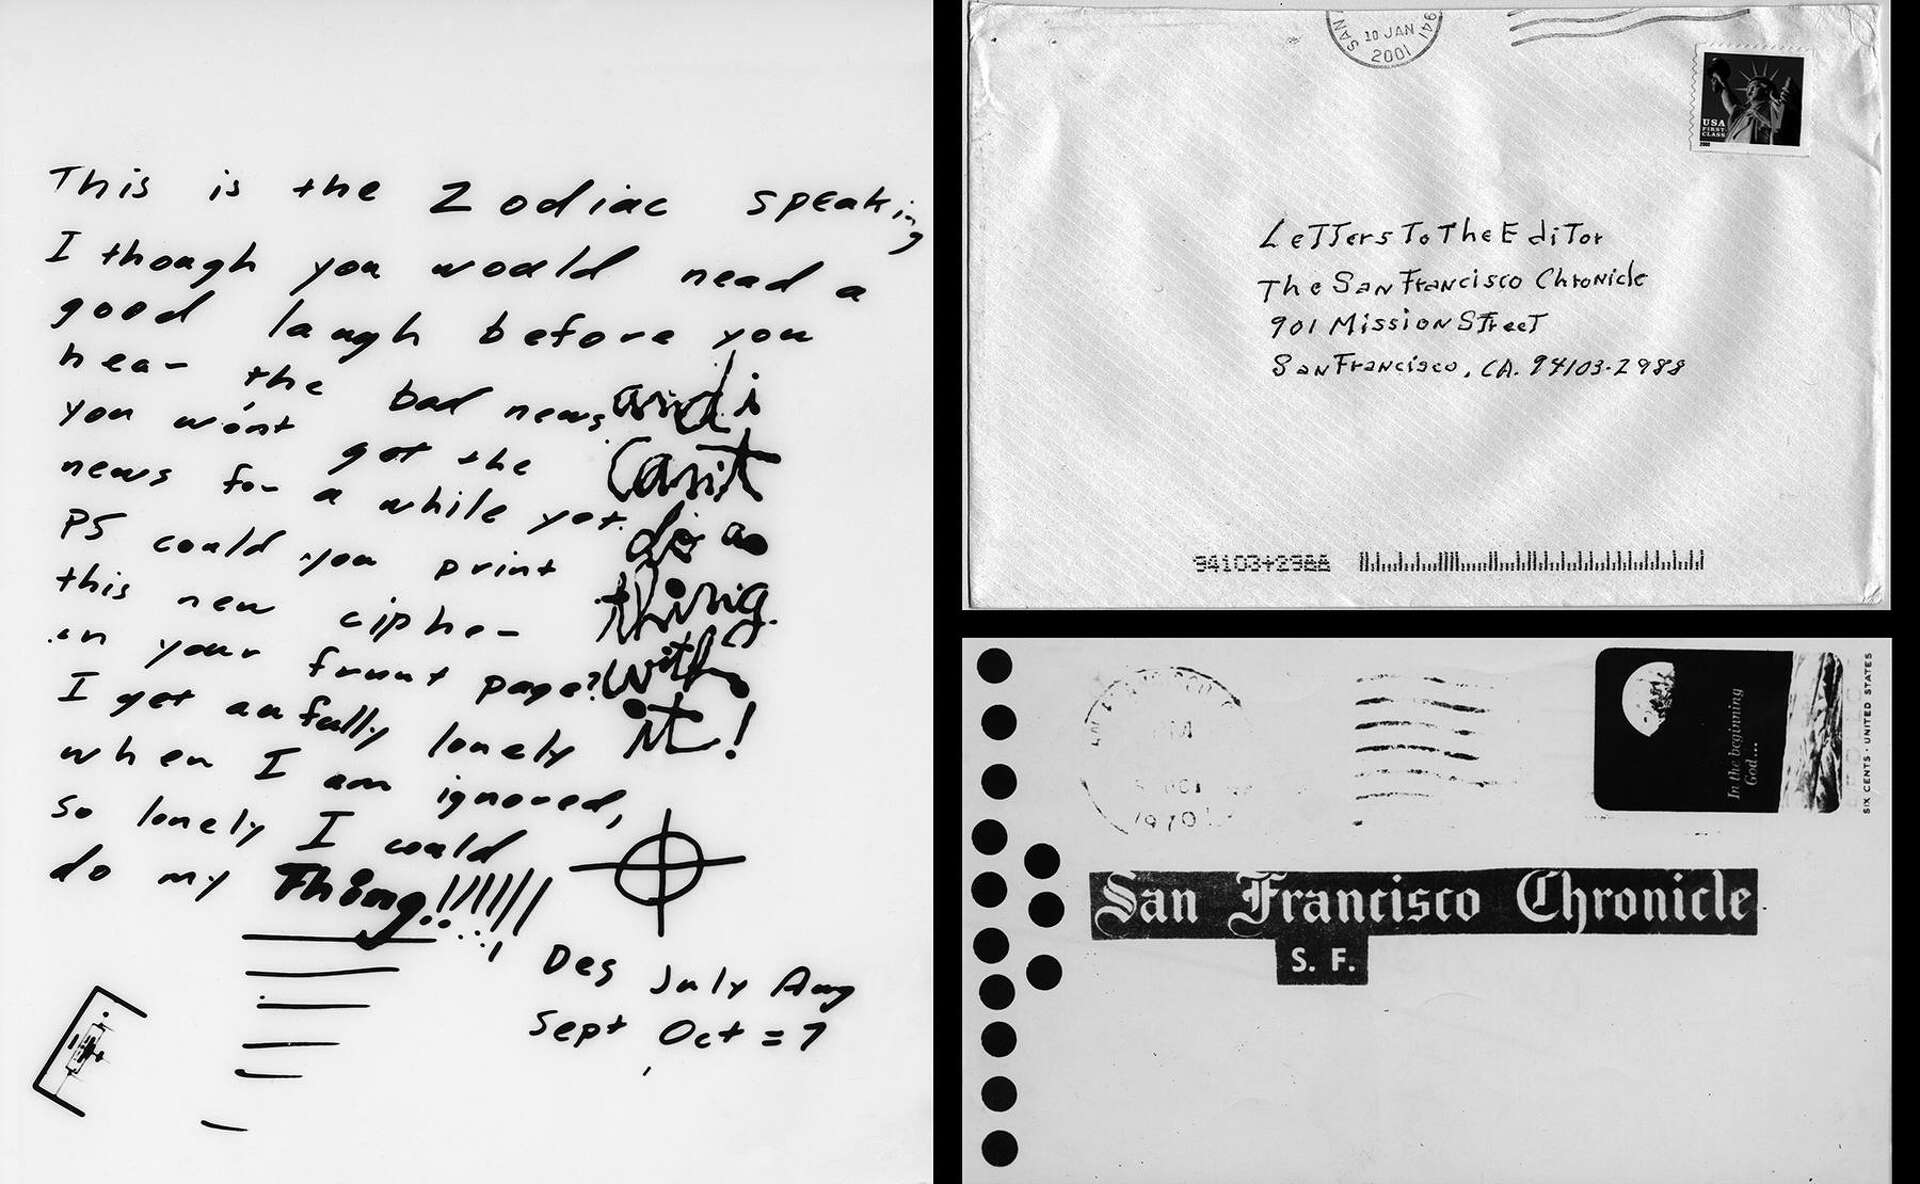 This is the Zodiac speaking
I though you would nead a
good laugh before you
hear the bad news
you won't get the
news for a while yet.
PS could you print
this new cipher
in your frunt page?
I get aufully lonely
when I am ignored,
so lonely I could
do my Thing!!!!!!
and i
can't
do a
thing
with
it!
Des July Aug
Sept Oct = 7
SAN 941
10 JAN
2001
USA
FIRST
CLASS
2000
LeTTers To The EdiTor
The San Francisco Chronicle
901 Mission STreeT
San Francisco, CA. 94103-2988
94103+2988
1970
In the beginning
God...
SIX CENTS · UNITED STATES
San Francisco Chronicle
S. F.